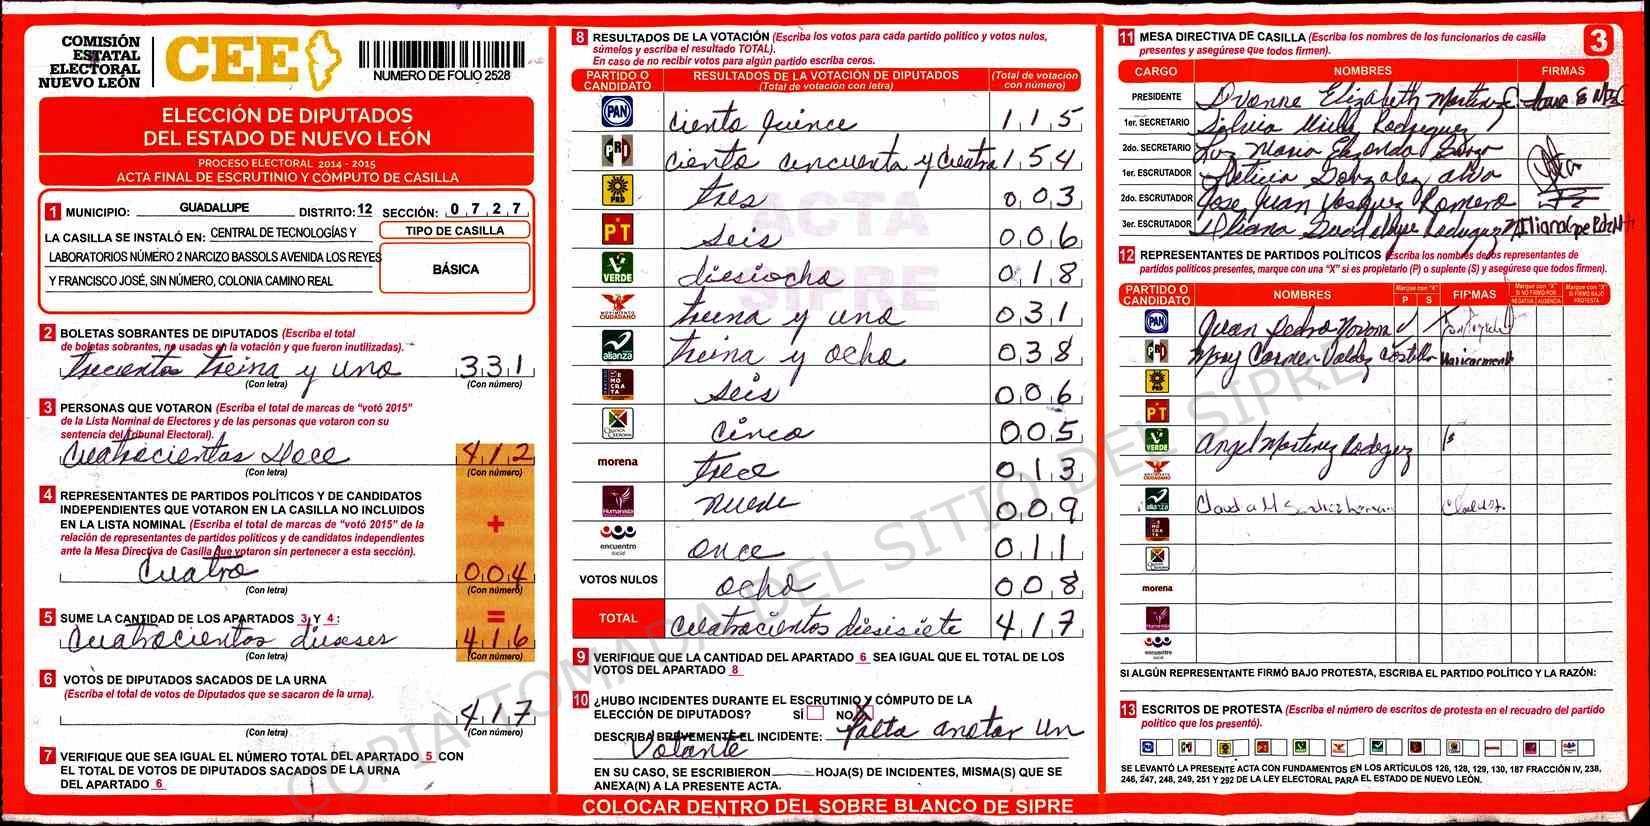 COMISIÓN
ESTATAL
ELECTORAL
NUEVO LEÓN
CEE
NUMERO DE FOLIO 2528
ELECCIÓN DE DIPUTADOS
DEL ESTADO DE NUEVO LEÓN
PROCESO ELECTORAL 2014 - 2015
ACTA FINAL DE ESCRUTINIO Y CÓMPUTO DE CASILLA
1 MUNICIPIO: GUADALUPE DISTRITO: 12 SECCIÓN: 0 7 2 7
LA CASILLA SE INSTALÓ EN: CENTRAL DE TECNOLOGÍAS Y
LABORATORIOS NÚMERO 2 NARCIZO BASSOLS AVENIDA LOS REYES
Y FRANCISCO JOSÉ, SIN NÚMERO, COLONIA CAMINO REAL
TIPO DE CASILLA
BÁSICA
2 BOLETAS SOBRANTES DE DIPUTADOS (Escriba el total
de boletas sobrantes, no usadas en la votación y que fueron inutilizadas).
trecientos treina y uno 331
(Con letra) (Con número)
3 PERSONAS QUE VOTARON (Escriba el total de marcas de “votó 2015”
de la Lista Nominal de Electores y de las personas que votaron con su
sentencia del Tribunal Electoral).
Cuatrocientos Doce 412
(Con letra) (Con número)
4 REPRESENTANTES DE PARTIDOS POLÍTICOS Y DE CANDIDATOS
INDEPENDIENTES QUE VOTARON EN LA CASILLA NO INCLUIDOS
EN LA LISTA NOMINAL (Escriba el total de marcas de “votó 2015” de la
relación de representantes de partidos políticos y de candidatos independientes
ante la Mesa Directiva de Casilla que votaron sin pertenecer a esta sección).
+
Cuatro 004
(Con letra) (Con número)
5 SUME LA CANTIDAD DE LOS APARTADOS 3 Y 4: =
Cuatrocientos dieseses 416
(Con letra) (Con número)
6 VOTOS DE DIPUTADOS SACADOS DE LA URNA
(Escriba el total de votos de Diputados que se sacaron de la urna).
417
(Con letra) (Con número)
7 VERIFIQUE QUE SEA IGUAL EL NÚMERO TOTAL DEL APARTADO 5 CON
EL TOTAL DE VOTOS DE DIPUTADOS SACADOS DE LA URNA
DEL APARTADO 6
8 RESULTADOS DE LA VOTACIÓN (Escriba los votos para cada partido político y votos nulos,
súmelos y escriba el resultado TOTAL).
En caso de no recibir votos para algún partido escriba ceros.
PARTIDO O CANDIDATO RESULTADOS DE LA VOTACIÓN DE DIPUTADOS (Total de votación con letra) (Total de votación con número)
PAN Ciento Quince 115
PRI Ciento cincuenta y Cuatro 154
PRD tres 003
PT Seis 006
VERDE diesiocho 018
MOVIMIENTO CIUDADANO treina y uno 031
alianza treina y ocho 038
DEMOCRATA Seis 006
CRUZADA CIUDADANA Cinco 005
morena trece 013
Humanista nueve 009
encuentro social once 011
VOTOS NULOS ocho 008
TOTAL Cuatrocientos diesisiete 417
ACTA
SIPRE
9 VERIFIQUE QUE LA CANTIDAD DEL APARTADO 6 SEA IGUAL QUE EL TOTAL DE LOS
VOTOS DEL APARTADO 8
10 ¿HUBO INCIDENTES DURANTE EL ESCRUTINIO Y CÓMPUTO DE LA
ELECCIÓN DE DIPUTADOS? SÍ NO X
DESCRIBA BREVEMENTE EL INCIDENTE: falta anotar un
Volante
EN SU CASO, SE ESCRIBIERON HOJA(S) DE INCIDENTES, MISMA(S) QUE SE
ANEXA(N) A LA PRESENTE ACTA.
COLOCAR DENTRO DEL SOBRE BLANCO DE SIPRE
11 MESA DIRECTIVA DE CASILLA (Escriba los nombres de los funcionarios de casilla
presentes y asegúrese que todos firmen).
3
CARGO NOMBRES FIRMAS
PRESIDENTE Ivonne Elizabeth Martinez C
1er. SECRETARIO Silvia Rodriguez
2do. SECRETARIO Luz Maria Elizondo
1er. ESCRUTADOR Leticia Gonzalez
2do. ESCRUTADOR Jose Juan Vasquez Romero
3er. ESCRUTADOR Iliana Guadalupe
12 REPRESENTANTES DE PARTIDOS POLÍTICOS (Escriba los nombres de los representantes de
partidos políticos presentes, marque con una “X” si es propietario (P) o suplente (S) y asegúrese que todos firmen).
PARTIDO O CANDIDATO NOMBRES Marque con “X” P S FIRMAS Marque con “X” SI NO FIRMÓ POR NEGATIVA AUSENCIA Marque con “X” SI FIRMÓ BAJO PROTESTA
PAN Juan Pedro
PRI Mary Carmen Valdez Castillo Maricarmen
PRD
PT
VERDE Angel Martinez
MOVIMIENTO CIUDADANO
alianza Claudia M
morena
Humanista
encuentro social
SI ALGÚN REPRESENTANTE FIRMÓ BAJO PROTESTA, ESCRIBA EL PARTIDO POLÍTICO Y LA RAZÓN:
13 ESCRITOS DE PROTESTA (Escriba el número de escritos de protesta en el recuadro del partido
político que los presentó).
SE LEVANTÓ LA PRESENTE ACTA CON FUNDAMENTOS EN LOS ARTÍCULOS 126, 128, 129, 130, 187 FRACCIÓN IV, 238,
246, 247, 248, 249, 251 Y 292 DE LA LEY ELECTORAL PARA EL ESTADO DE NUEVO LEÓN.
COPIA TOMADA DEL SITIO DEL SIPRE